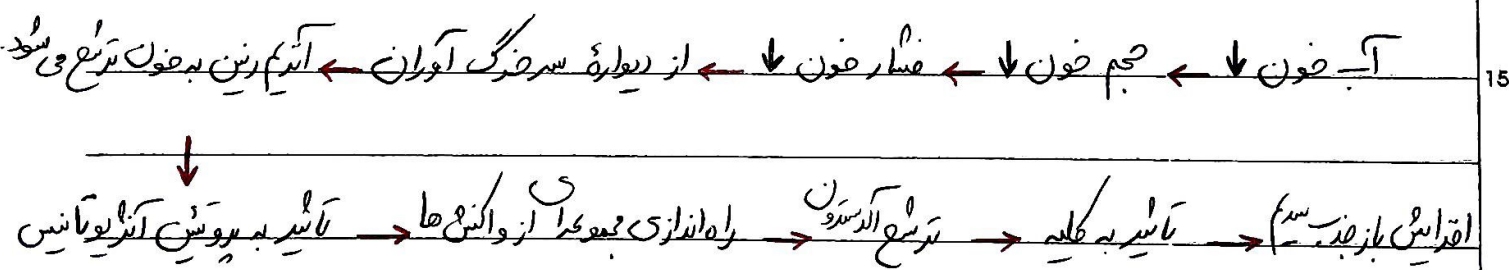 آب خون ↓ ← حجم خون ↓ ← فشار خون ↓ ← از دیوارهٔ سرخرگ آوران ← آنزیم رنین به خون ترشح می شود.
15
↓
تأثیر به پروتئین آنژیوتانسین → راه اندازی مجموعه ای از واکنش ها → ترشح آلدسترون → تأثیر به کلیه → افزایش بازجذب سدیم